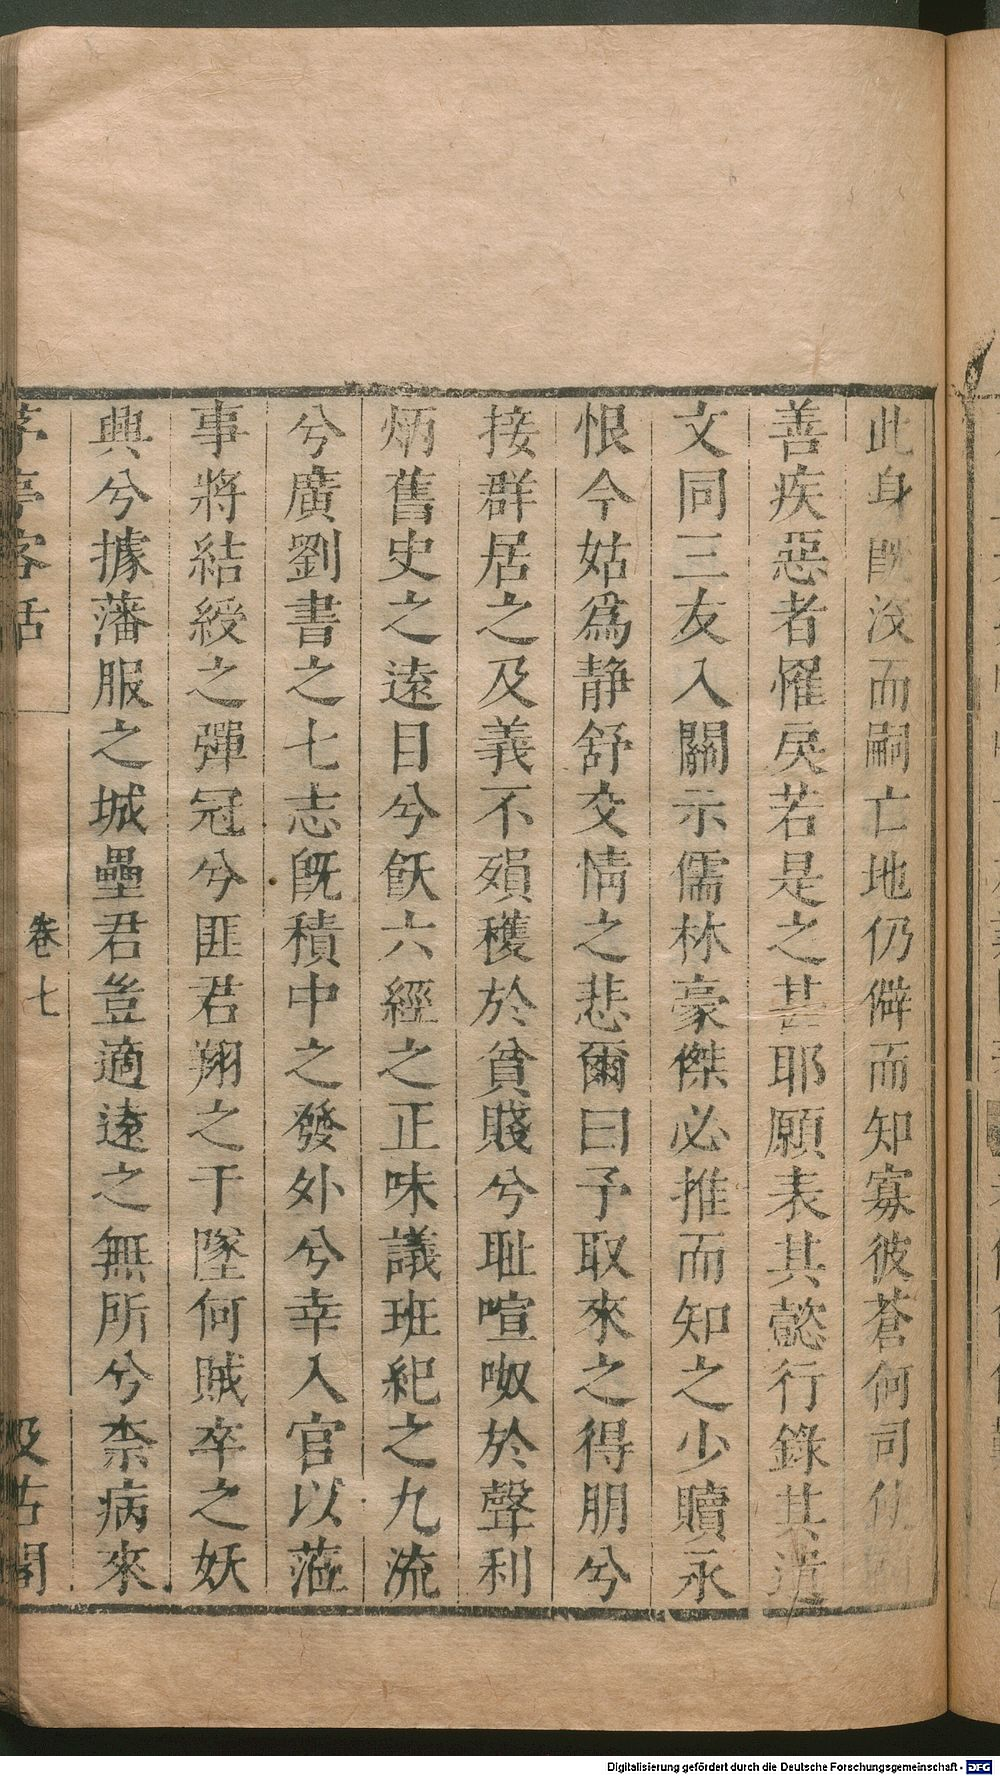 此身既沒而嗣亡地仍僻而知寡彼蒼何司仇
善疾惡者懼戾若是之甚耶願表其懿行錄其遺
文同三友入關示儒林豪傑必推而知之少贖永
恨今姑爲静舒交情之悲爾曰予取來之得朋兮
接群居之及義不殞穫於貧賤兮耻喧呶於聲利
炳舊史之遠目兮飫六經之正味議班紀之九流
兮廣劉書之七志旣積中之發外兮幸入官以蒞
事將結綬之彈冠兮匪君翔之于墜何賊卒之妖
興兮據藩服之城壘君豈適遠之無所兮柰病來
茅亭客話
卷七
汲古閣
Digitalisierung gefördert durch die Deutsche Forschungsgemeinschaft - DFG